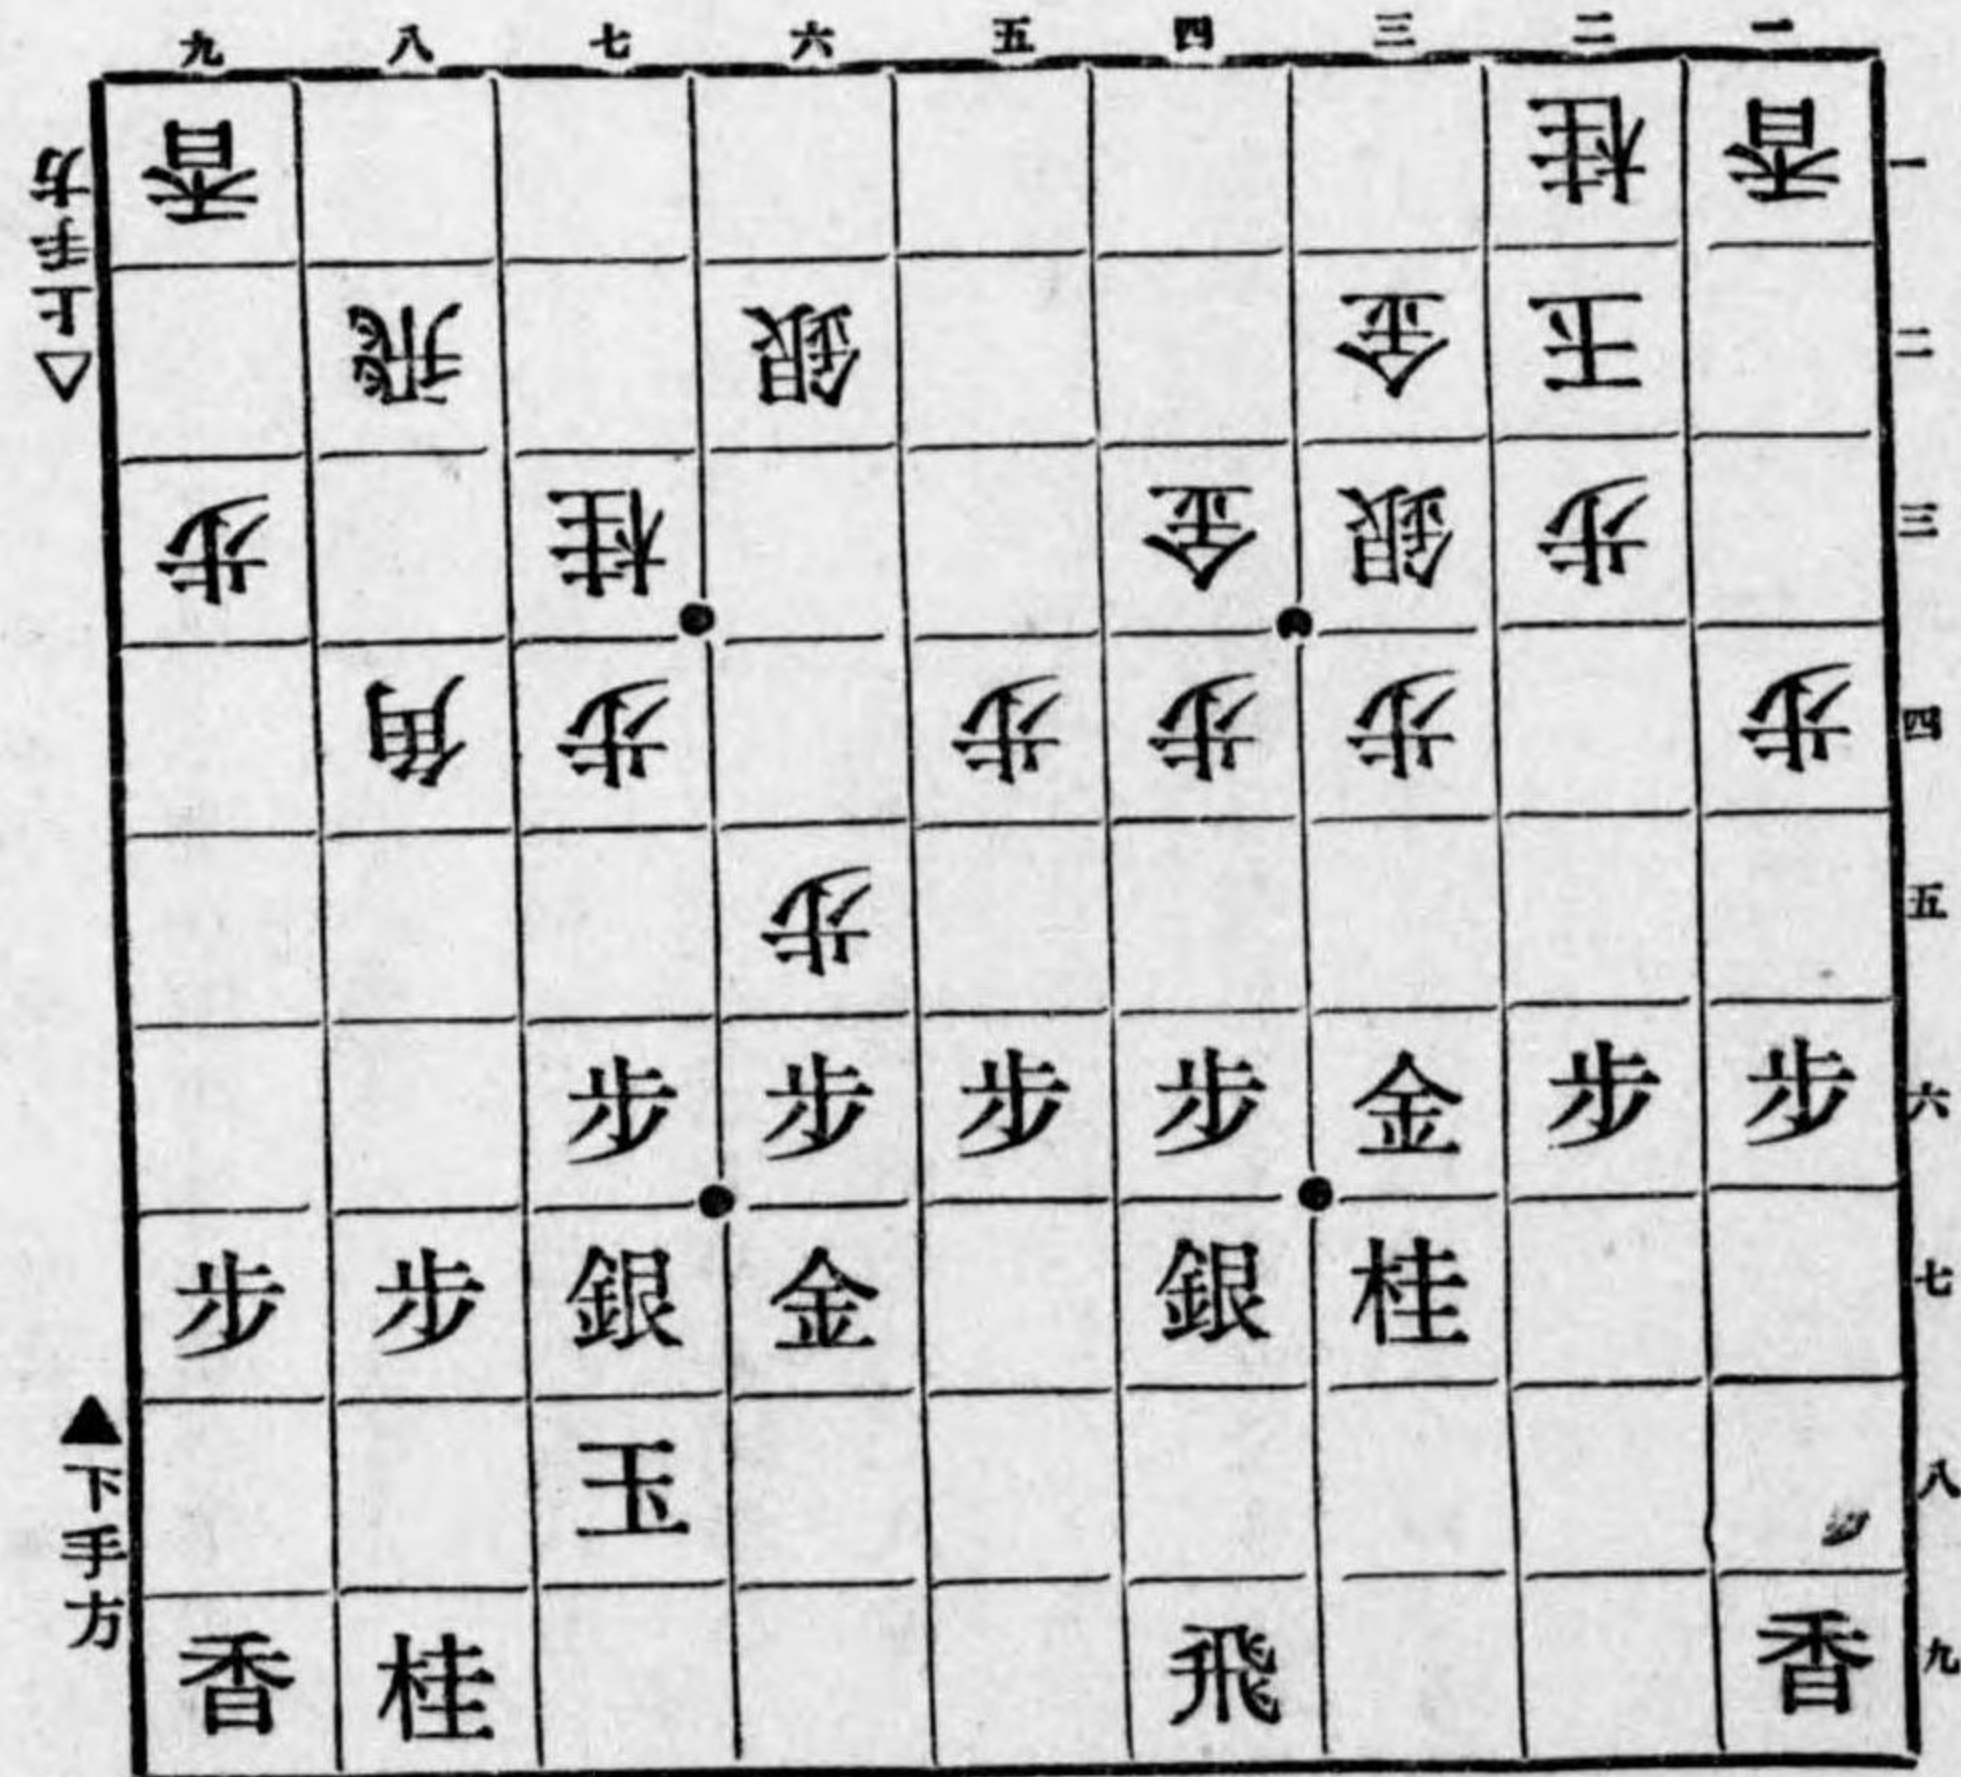 九 八 七 六 五 四 三 二 一
香 桂 香 一
飛 銀 金 玉 二
歩 桂 金 銀 歩 三
角 歩 歩 歩 歩 歩 四
歩 五
歩 歩 歩 歩 金 歩 歩 六
歩 歩 銀 金 銀 桂 七
玉 八
香 桂 飛 香 九
△上手方
▲下手方